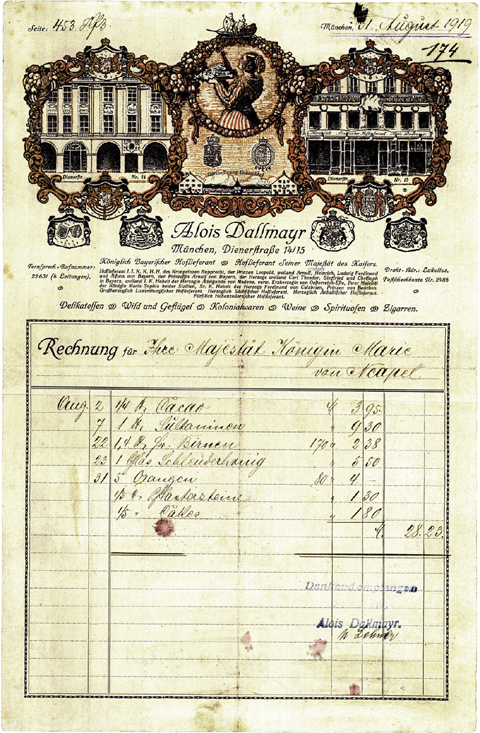 Seite: 453
München, 31. August 1919
174
Dienerstr. Nr. 14
Dienerstr. Nr. 15
Alois Dallmayr
München, Dienerstraße 14/15
Königlich Bayerischer Hoflieferant Hoflieferant Seiner Majestät des Kaisers.
Fernsprech-Rufnummer:
22651 (6 Leitungen).
Draht-Adr.: Lukullus.
Postscheckkonto Nr. 2985
Delikatessen Wild und Geflügel Kolonialwaren Weine Spirituosen Zigarren.
Rechnung für Ihre Majestät Königin Marie
von Neapel
Aug. 2 1/4 ℔ Cacao M. 3 95
7 1 ℔ Sultaninen " 9 30
22 1,4 ℔ Birnen 170 " 2 38
23 1 Glas Schleuderhonig " 5 50
31 5 Orangen 80 " 4 —
1/5 " 1 30
1/5 " Cakes " 1 80
M. 28.23.
Dankend empfangen
Alois Dallmayr.